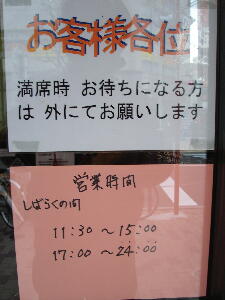 お客様各位
満席時 お待ちになる方
は 外にてお願いします
営業時間
しばらくの間
11:30 ～ 15:00
17:00 ～ 24:00